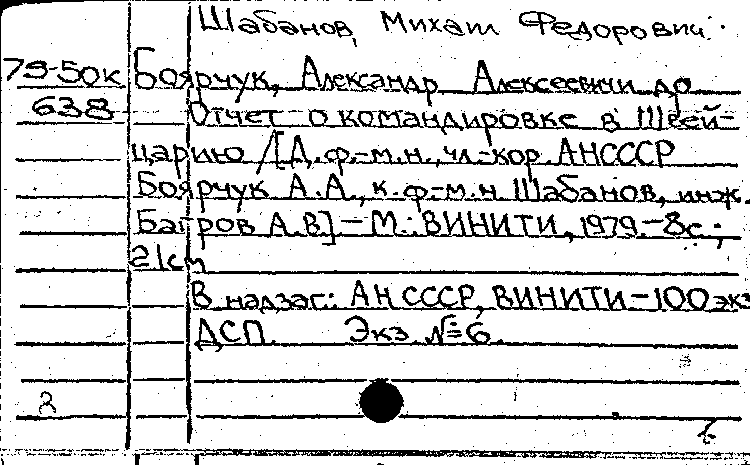 Шабанов, Михаил Федорович
79-50к Боярчук, Александр Алексеевич и др
638 Отчет о командировке в Швей-
царию /[Д.ф.-м.н., чл.-кор. АНСССР
Боярчук А.А., к.ф.-м.н Шабанов, инж.
Багров А.В] – М.: ВИНИТИ, 1979.-8с.;
21см
В надзаг: АН СССР, ВИНИТИ – 100экз
ДСП. Экз. №6.
2